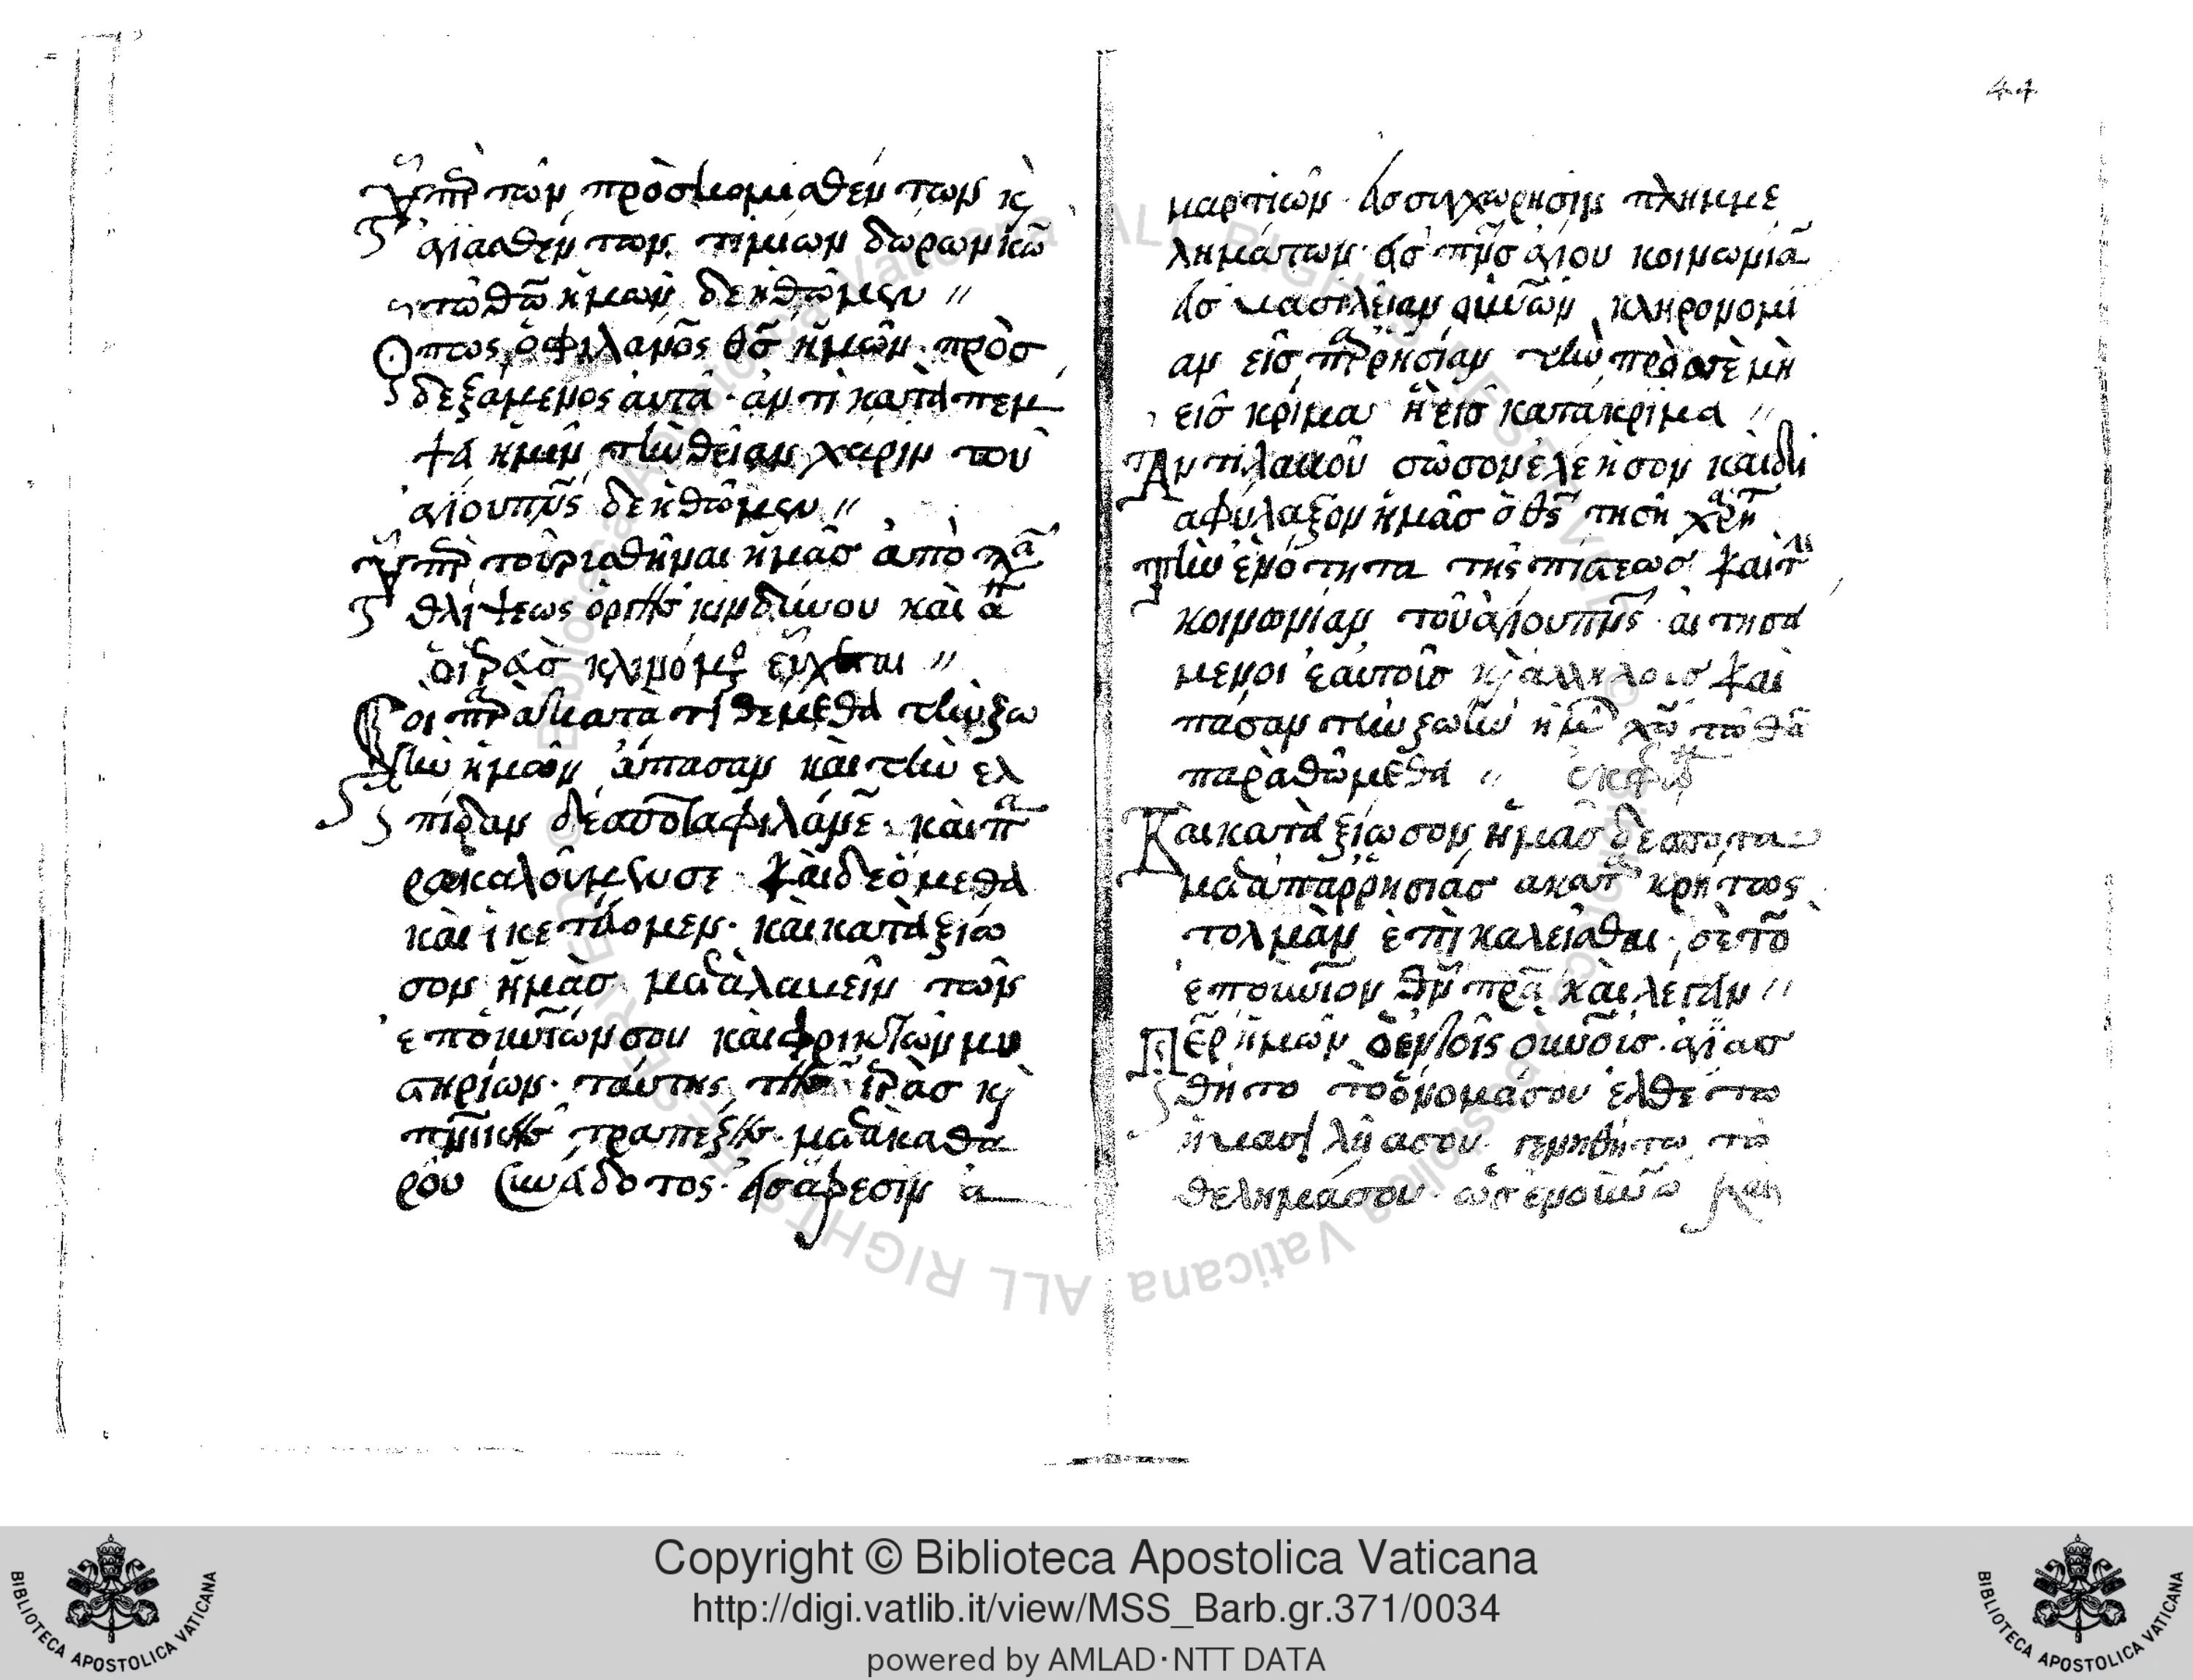 ὑπὲρ τῶν πρὸσκομισθέντων κ̀
αγιασθέντων τιμίων δώρων κῦ
τῶ θῶ ἡμῶν δεηθῶμεν //
Ὅπως ὁ φιλάνος θς ἡμῶν πρὸσ
δεξάμενος αυτὰ· ἀντικατὰπεμ
ψη ἡμῖν τὴν θείαν χάριν τοῦ
αγίου πνς δεηθῶμεν //
ὑπὲρ τοῦ ρισθῆναι ἡμᾶσ ἀπὸ πα
θλίψεως ὀργῆσ κινδύνου καὶ α
Σοὶ παρακατατιθέμεθα τὴν ζω
ὴν ἡμῶν ἅπασαν καὶ τὴν ελ
πίδαν δέσποτα φιλάνε· καὶ π
ρακαλοῦμεν σε· καὶ δεόμεθα
καὶ ικετεύομεν· καὶ κατὰξίω
σον ἡμᾶσ μεταλαβεῖν τῶν
εποὐνίων σου καὶ φρικτῶν μυ
στηρίων· ταύτης τῆσ ἱρᾶσ κ̀
πνικῆσ τραπέζησ· μετὰ καθα
ροῦ συνήδοτος· εἰσ ἄφεσιν ἁ
44
μαρτιῶν· εἰσ συγχώρησιν πλημμε
λημάτων· εἰσ πνσ αγίου κοινωνία
εἰσ βασιλείαν οὐνῶν κληρονομί
αν εἰσ παρρησίαν τὴν πρὸσ σὲ μὴ
εἰσ κρίμα ἢ εἰσ κατάκριμα //
Ἀντιλαβοῦ σῶσον ἐλεησον καὶ δι
αφύλαξον ἡμᾶσ ὁ θς τη σῆ χαρτ
τὴν ἑνότητα τῆς πίστεωσ καὶ τ
κοινωνίαν τοῦ αγίου πνς αιτησα
μενοι ἑαυτοῖσ κ̀ ἀλλήλοισ καὶ
πάσαν τὴν ζωὴν ἡμ χω τῶ θω
παρὰθώμεθα // εκφω
Καὶ κατὰξίωσον ἡμᾶσ δέσποτα
μετὰ παρρησίασ ακατακρήτως
τολμᾶν ἐπικαλεῖσθαι· σὲ τὸ
ἐποὐνιον θν πρα καὶ λέγειν //
Περ ἡμῶν ὁ ἐν τοῖς οὐνοισ· αγιασ
θήτο τὸ ὄνομά σου ἐλθέτω
ἡ βασιλεία σου· γενηθήτω τὸ
θέλημά σου· ὡσ ἐν οὐνω καὶ
Copyright © Biblioteca Apostolica Vaticana
http://digi.vatlib.it/view/MSS_Barb.gr.371/0034
powered by AMLAD·NTT DATA
BIBLIOTECA APOSTOLICA VATICANA
BIBLIOTECA APOSTOLICA VATICANA